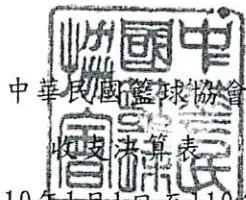 中華民國籃球協會
收支決算表
10年1月1日至110